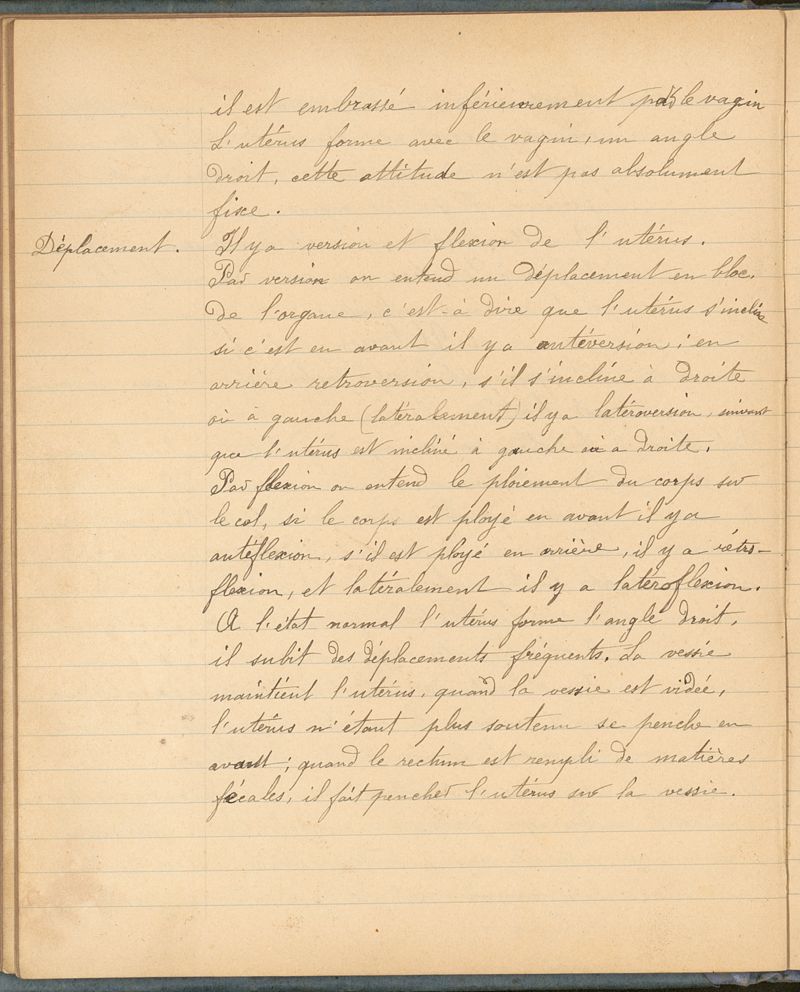 il est embrassé inférieurement par le vagin
L'utérus forme avec le vagin, un angle
droit, cette attitude n'est pas absolument
fixe.
Déplacement. Il y a version et flexion de l'utérus.
Par version on entend un déplacement en bloc.
de l'organe, c'est-à dire que l'utérus s'incline
si c'est en avant il y a antéversion ; en
arrière retroversion, s'il s'incline à droite
où à gauche (latéralement) il y a latéroversion, suivant
que l'utérus est incliné à gauche où a droite.
Par flexion on entend le ploiement du corps sur
le col, si le corps est ployé en avant il y a
antéflexion, s'il est ployé en arrière, il y a rétro-
flexion, et latéralement il y a latéroflexion.
A l'état normal l'utérus forme l'angle droit,
il subit des déplacements fréquents. La vessie
maintient l'utérus, quand la vessie est vidée,
l'utérus n'étant plus soutenu se penche en
avant ; quand le rectum est rempli de matières
fécales, il fait pencher l'utérus sur la vessie.